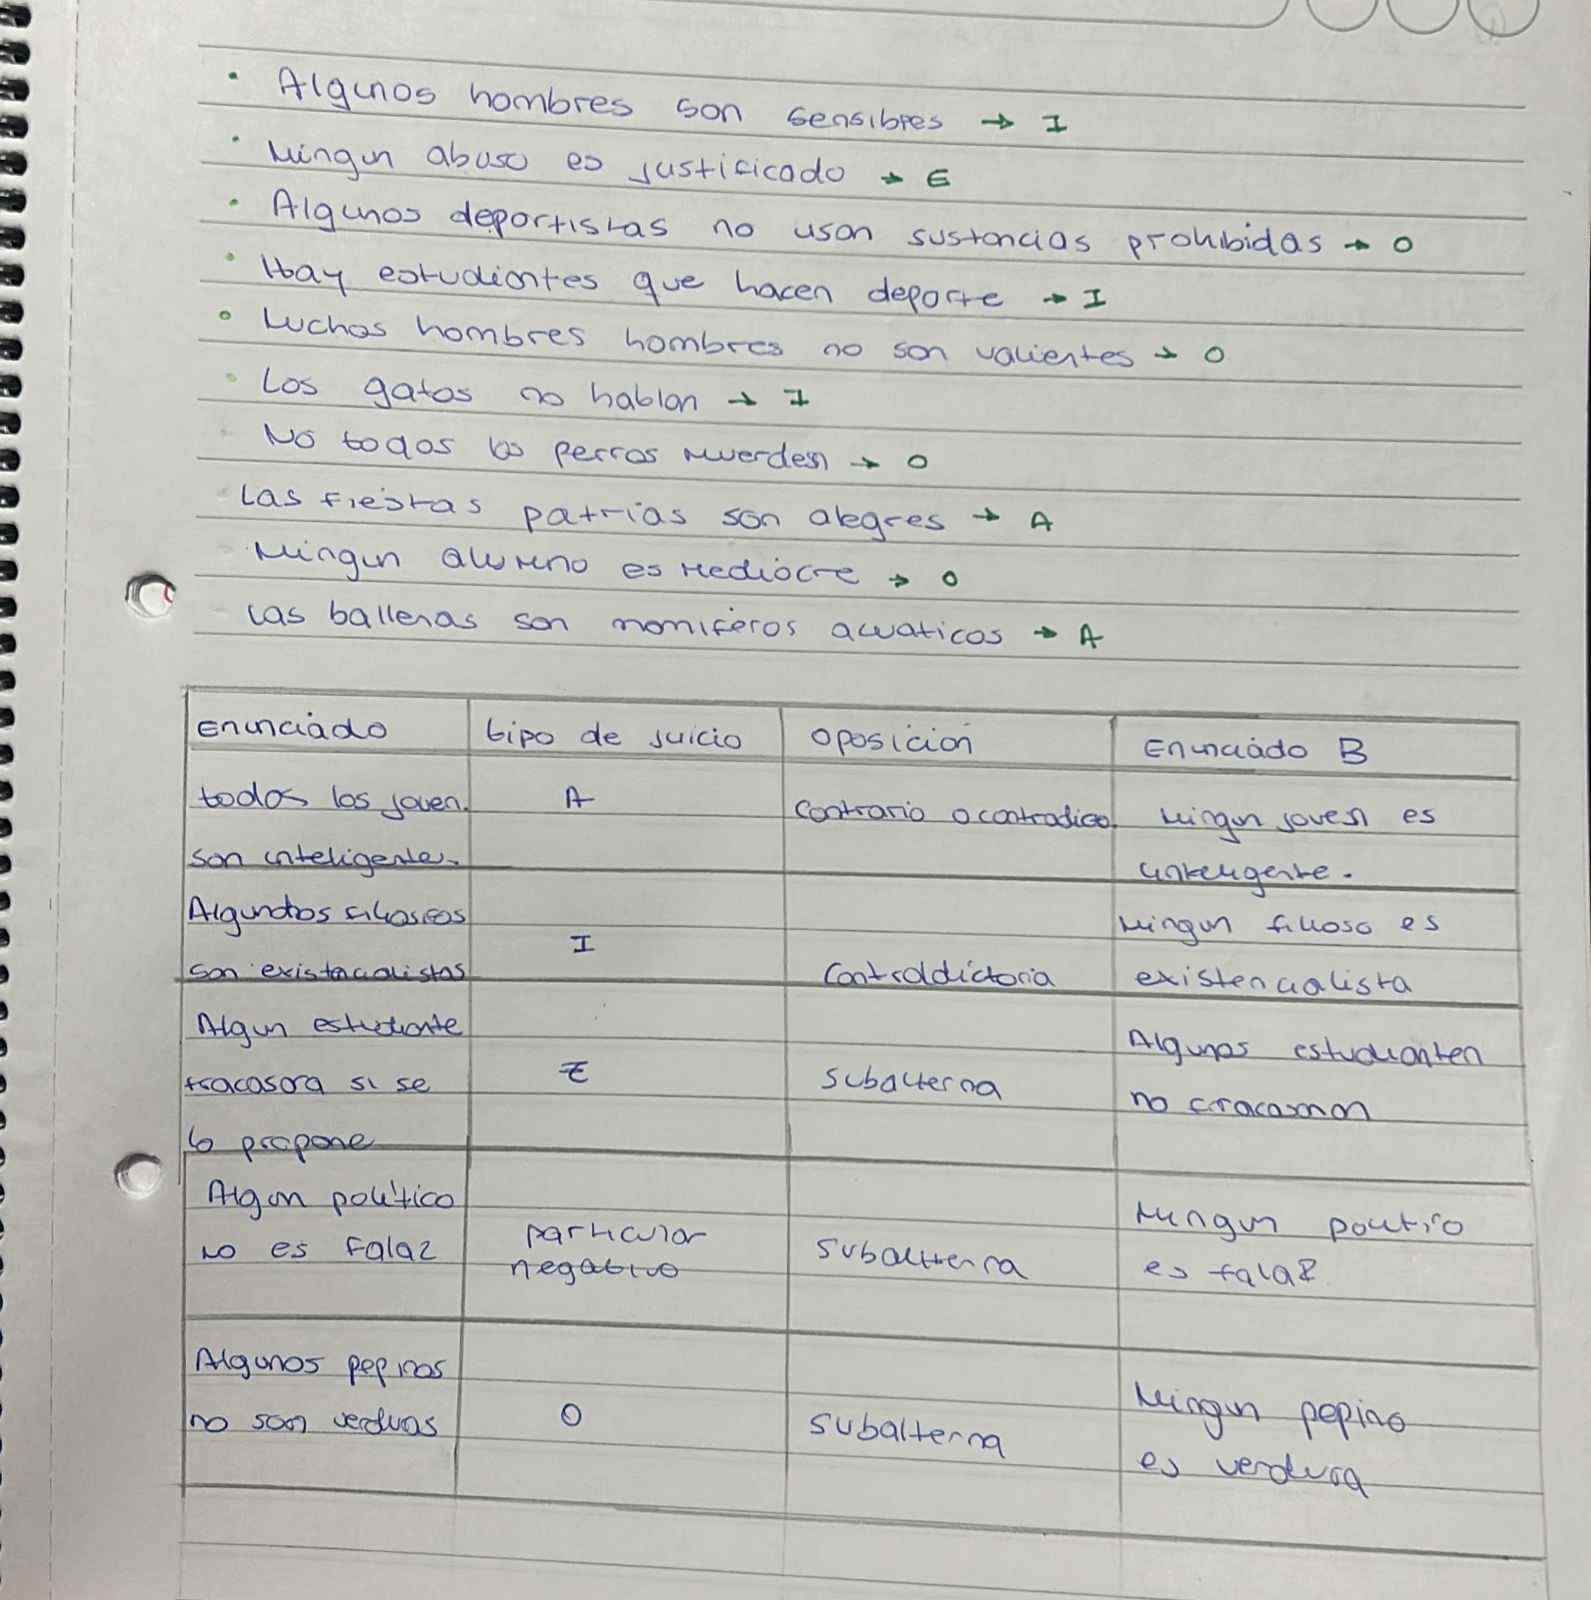 • Algunos hombres son sensibles → I
• Ningun abuso es justificado → E
• Algunos deportistas no usan sustancias prohibidas → O
• Hay estudiantes que hacen deporte → I
• Muchos hombres hombres no son valientes → O
• Los gatos no hablan → I
No todos los perros muerden → O
Las fiestas patrias son alegres → A
Ningun alumno es mediocre → O
Las ballenas son mamiferos acuaticos → A
Enunciado tipo de juicio oposicion Enunciado B
todos los joven. A contrario o contradico Ningun joven es
son inteligente. inteligente.
Algundos filosofos I Ningun filoso es
son existencialistas Contradictoria existencialista
Algun estudiante Algunos estudianten
fracasara si se E subalterna no fracasaran
lo propone
Algun politico Ningun politico
no es falaz particular negativo subalterna es falaz
Algunos pepinos Ningun pepino
no son verduras O subalterna es verdura